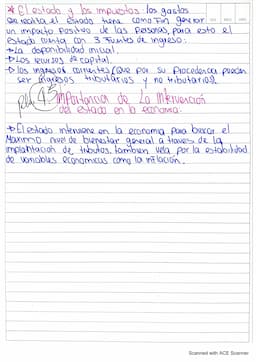 * El estado y los impuestos: los gastos
el estado tiene como fin generar
un impacto positivo de las personas, para esto el
estado cuenta con 3 fuentes de ingreso:
La disponibilidad inicial,
Los recursos de capital
los ingresos corrientes (que por su procedencia pueden
ser ingresos tributarios y no tributarios.
Importancia de La Intervención
del estado en la economía:
El estado interviene en la economía para buscar el
Maximo nivel de bienestar general a traves de la
implantación de tributos, tambien vela por la estabilidad
de variables economicas como la inflación.
Scanned with ACE Scanner